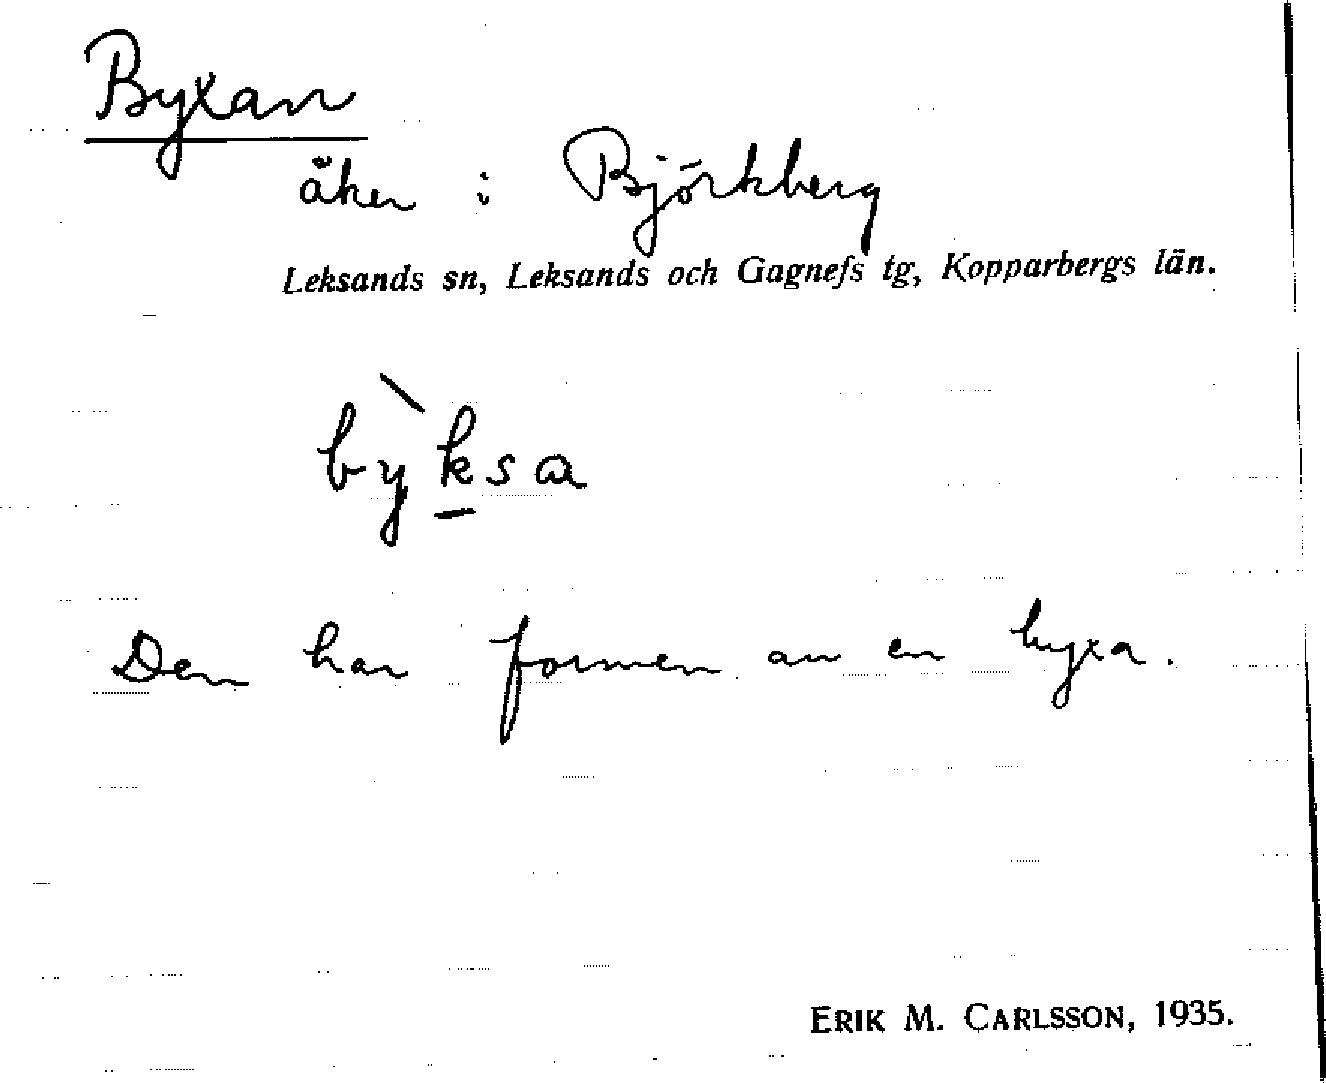 Byxan
åker i Björkberg
Leksands sn, Leksands och Gagnefs tg, Kopparbergs län.
bỳk̲sa
Den har formen av en byxa.
ERIK M. CARLSSON, 1935.